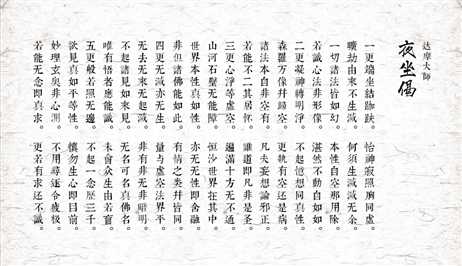 达摩大師
夜坐偈
一更端坐結跏趺。怡神寂照胸同虛。
曠劫由來不生滅。何須生滅滅无余。
一切諸法皆如幻。本性自空那用除。
若識心法非形像。湛然不動自如如。
二更凝神轉明淨。不起憶想同真性。
森羅万像并歸空。更執有空還是病。
諸法本自非空有。凡夫妄想論邪正。
若能不二其居怀。誰道即凡非是圣。
三更心淨等虛空。遍滿十方无不通。
山河石壁无能障。恒沙世界在其中。
世界本性真如性。亦无无性即含融。
非但諸佛能如此。有情之類并皆同。
四更无滅亦无生。量与虛空法界平。
无去无來无起滅。非有非无非暗明。
不起諸見如來見。无名可名真佛名。
唯有悟者應能識。未會眾生由若盲。
五更般若照无邊。不起一念歷三千。
欲見真如平等性。慎勿生心即目前。
妙理玄奥非心測。不用尋逐令疲極。
若能无念即真求。更若有求還不識。